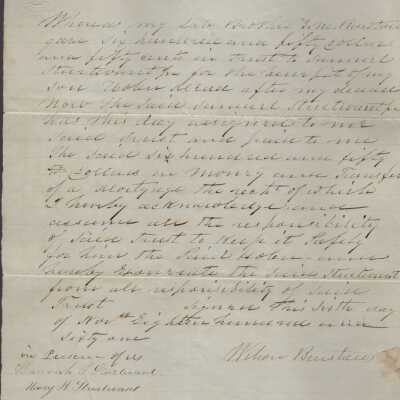 Whereas my late Brother
gave six hundred and fifty dollars
and fifty cents in trust to Samuel
Sturtevant for the benefit of my
son after my decease
Now the said Samuel Sturtevant
has this day assigned to me
said trust and paid to me
the said six hundred and fifty
dollars in money and transfer
of a Mortgage the receipt of which
I hereby acknowledge and
assume all the responsibility
of said trust to keep it safely
for him the said and
hereby Exonerate the said Sturtevant
from all responsibility of said
Trust Signed this sixth day
of Novth Eighteen hundred and
sixty one
in Presence of us
Hannah Sturtevant
Mary H. Sturtevant